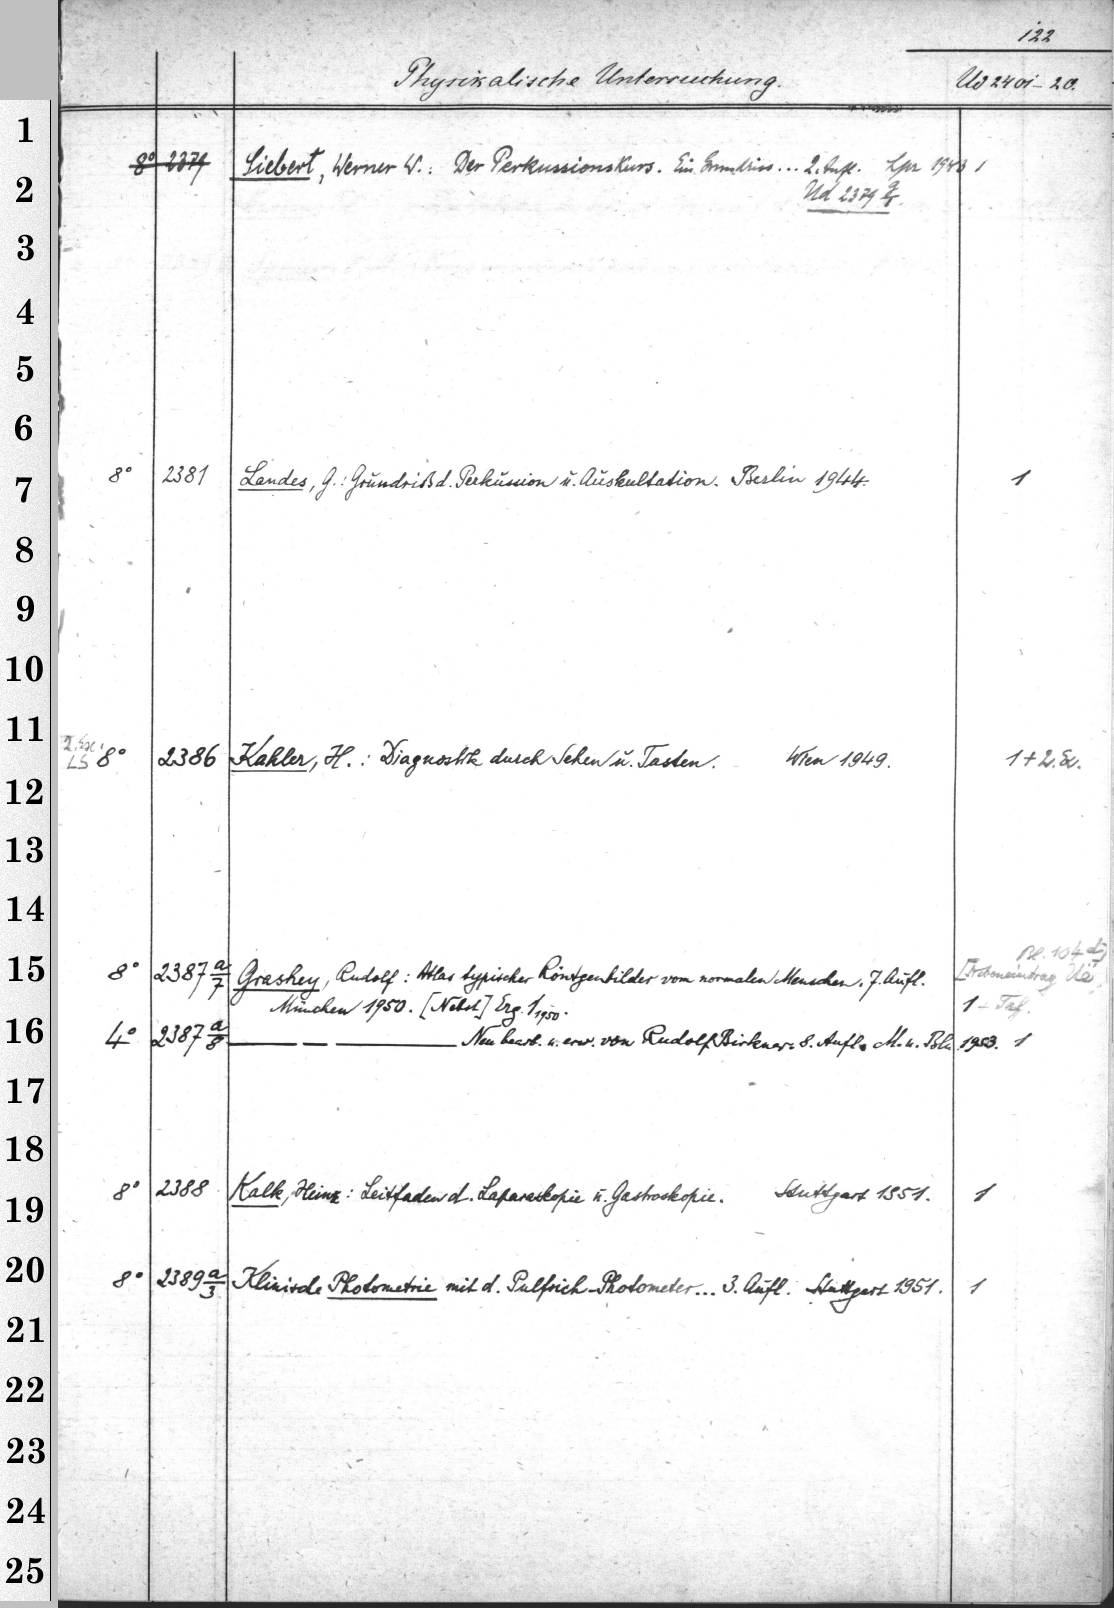 122
Physikalische Untersuchung. Ud 2401-20.
1
8° 2379 Siebert, Werner W.: Der Perkussionskurs. Ein Grundriss... 2. Aufl. Lpz 1943 1
2
Ud 2379
3
4
5
6
8° 2381 Landes, G.: Grundriß d. Perkussion u. Auskultation. Berlin 1944. 1
7
8
9
10
11
2. Ex.
LS 8° 2386 Kahler, H.: Diagnostik durch Sehen u. Tasten. Wien 1949. 1 + 2. Ex.
12
13
14
15
8° 2387 a/7 Grashey, Rudolf: Atlas typischer Röntgenbilder vom normalen Menschen. 7. Aufl.
München 1950. [Nebst] Erg. 1 1950. 1 - Taf.
16
4° 2387 a/8 — — — Neu bearb. u. erw. von Rudolf Birkner. 8. Aufl. M. u. Bln. 1953. 1
17
18
8° 2388 Kalk, Heinz: Leitfaden d. Laparoskopie u. Gastroskopie. Stuttgart 1951. 1
19
20
8° 2389 a/3 Klinische Photometrie mit d. Pulfrich-Photometer... 3. Aufl. Stuttgart 1951. 1
21
22
23
24
25